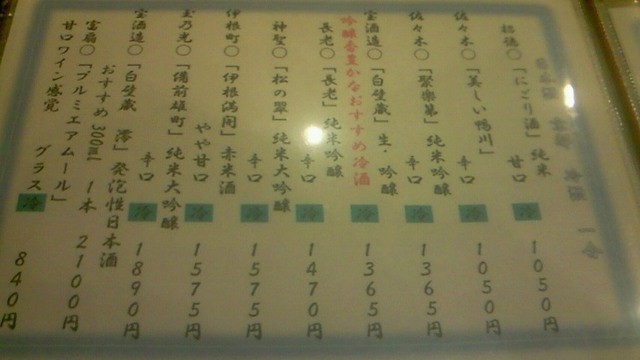 日本酒 京都 冷酒 一合
招徳〇「にごり酒」純米 甘口 冷 1050円
佐々木〇「美しい鴨川」 辛口 冷 1050円
佐々木〇「聚楽第」純米吟醸 辛口 冷 1365円
宝酒造〇「白壁蔵」生・吟醸 冷 1365円
吟醸香豊かなおすすめ冷酒
長老〇「長老」純米吟醸 辛口 冷 1470円
神聖〇「松の翠」純米大吟醸 辛口 冷 1575円
伊根町〇「伊根満開」赤米酒 やや甘口 冷 1575円
玉乃光〇「備前雄町」純米大吟醸 辛口 冷 1890円
宝酒造〇「白壁蔵 澪」発泡性日本酒
おすすめ 300ml 1本 2100円
富翁〇「プルミエアムール」
甘口ワイン感覚 グラス 冷 840円